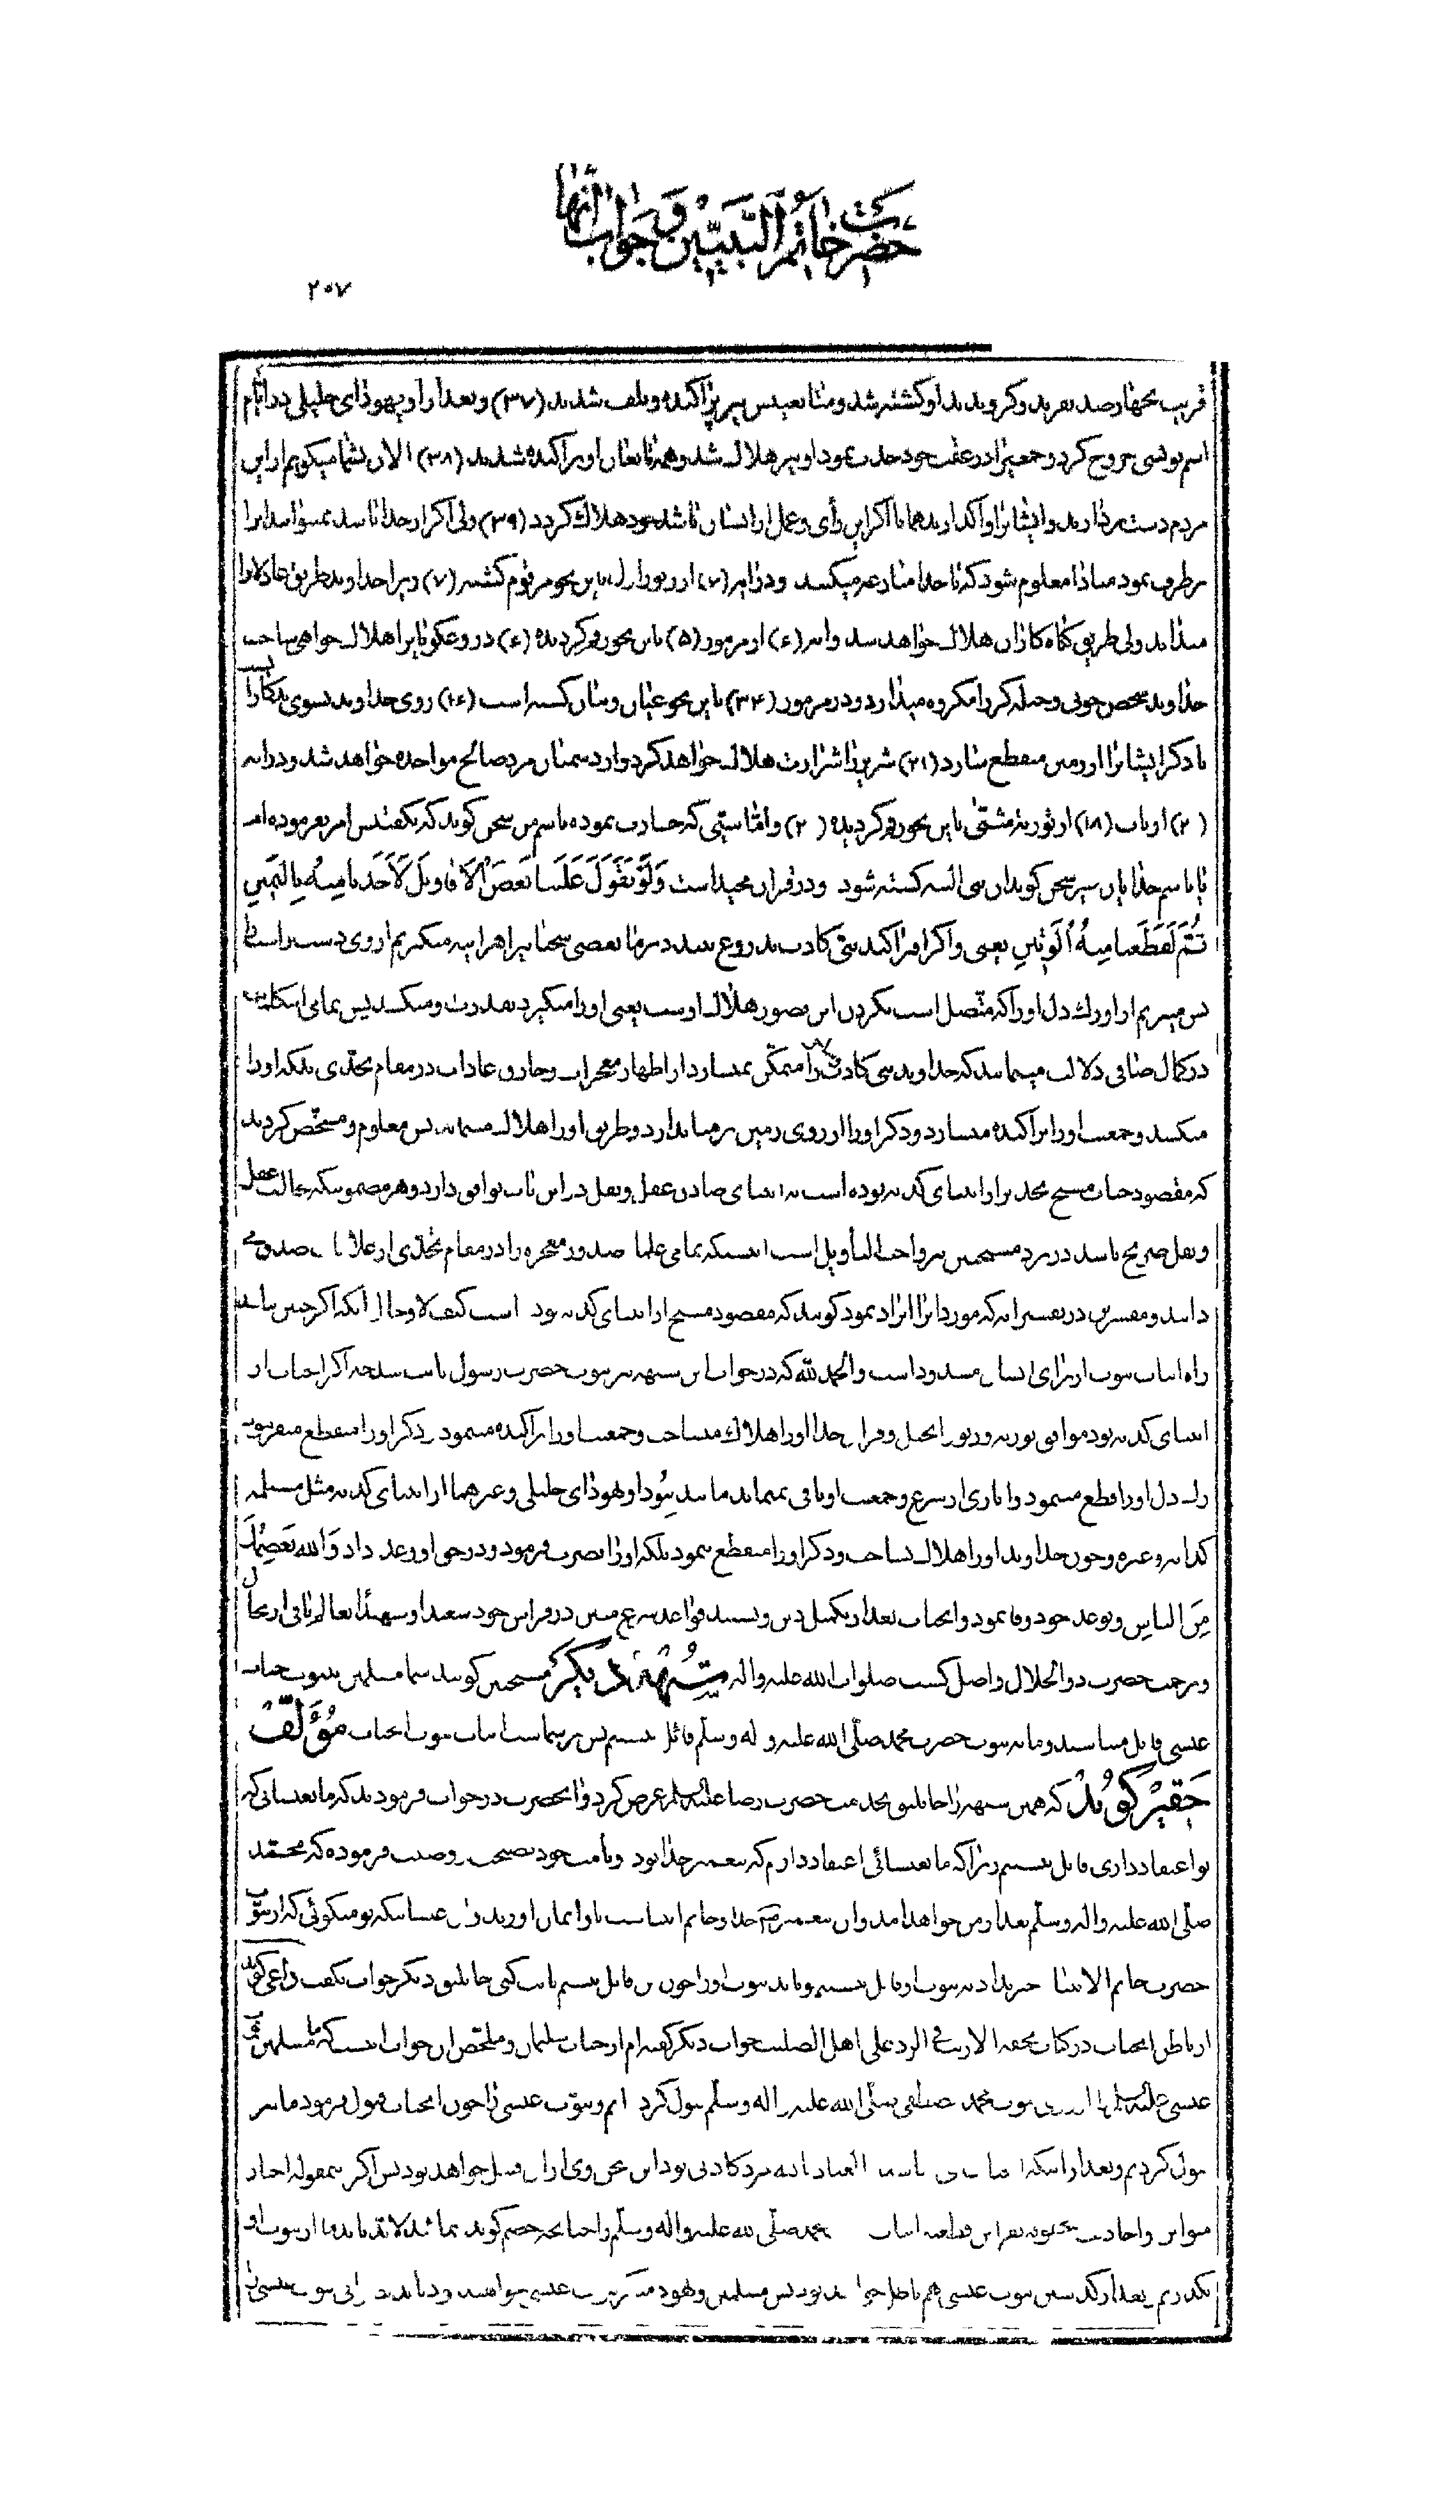 حضرت خاتم النبیین و جواب آنها
۲۰۷
قریب بچهار صد نفر بدو گرویدند او کشته شد و متابعینش نیز پراکنده و تلف شدند (۳۷) و بعد از او یهودای جلیلی در ایام
اسم نویسی خروج کرد و جمعی را در عقب خود جذب نمود او نیز هلاک شد و همه تابعان او پراکنده شدند (۳۸) الان بشما میگویم از این
مردم دست بردارید و ایشانرا واگذارید همانا اگر این رأی و عمل از انسان باشد خود هلاک گردد (۳۹) ولی اگر از خدا باشد نمیتوانید انرا
برطرف نمود مبادا معلوم شود که با خدا منازعه میکنید و در ایه (۷) از زبور اول باین نحو مرقوم گشته (۷) زیرا خداوند طریق عادلانرا
میداند ولی طریق گناه کاران هلاک خواهد شد وایه (۶) از مزمور (۵) باین نحو رقم گردیده (۶) دروغگویانرا هلاک خواهی ساخت
خداوند شخص خونی و حیله گر را مکروه میدارد و در مزمور (۳۴) باین نحو عیان و بیان گشته است (۱۶) روی خداوند بسوی بدکارانست
تا ذکر ایشانرا از زمین منقطع سازد (۲۱) شریر را شرارت هلاک خواهد کرد و از دشمنان مرد صالح مواخذه خواهد شد و در ایه
(۲۰) از باب (۱۸) از توریة مثنی باین نحو رقم گردیده (۲۰) و اما نبیی که جسارت نموده باسم من سخن گوید که بگفتنش امر نفرموده ام
یا باسم خدایان غیر سخن گوید ان نبی البته کشته شود و در قران مجید است وَلَوْ تَقَوَّلَ عَلَینا بَعضَ الْاَقاویلِ لَاَخَذنا مِنهُ بِالیَمینِ
ثُمَّ لَقَطَعنا مِنهُ الْوَتینَ یعنی و اگر افترا کند نبی کاذب بدروغ بندد بر ما بعضی سخنانیرا هراینه میگریم از وی دست راست را
پس میبریم از او رک دل او را که متصل است بگردن این تصویر هلاک اوست یعنی او را میگیرد بقدرت و میکشد پس تمامی این کلمات
در کمال صافی دلالت مینماید که خداوند نبی کاذب را متمکن نمیسازد از اظهار معجزات و خارق عادات در مقام تحدی بلکه او را
میکشد و جمعیت او را پراکنده میسازد و ذکر او را از روی زمین بر میاندازد و طریق او را هلاک مینماید پس معلوم و مشخص گردید
که مقصود جناب مسیح تحذیر از انبیای کذبه بوده است نه انبیای صادق عقل و نقل در این باب توافق دارد و هر مضمونیکه خلاف عقل
و نقل صریح باشد در نزد مسیحیین نیز واجب التأویل است اینستکه تمامی علما صدور معجزه را در مقام تحدی از علامات صدق می
دانند و مفسرین در تفسیر ایه که مورد انرا ایراد نمود گویند که مقصود مسیح از انبیای کذبه بوده است کیف لا و حال انکه اگر چنین نباشد
راه اثبات نبوت از برای انسان مسدود است و الحمد لله که در جواب این شبهه نیز نبوت حضرت رسول ثابت شد چه اگر انجناب از
انبیای کذبه بود موافق توریة و زبور و انجیل و قران خدا او را هلاک میساخت و جمعیت او را پراکنده مینمود و ذکر او را منقطع میفرمود
رک دل او را قطع مینمود و اثاری از شرع و جمعیت او باقی نمیماند مانند تیودا و یهودای جلیلی و غیر هما از انبیای کذبه مثل مسیلمه
کذاب و غیره و چون خداوند او را هلاک نساخت و ذکر او را منقطع ننمود بلکه او را نصرت فرمود و در حق او وعده داد وَاللّهُ یَعْصِمُکَ
مِنَ النّاسِ و بوعد خود وفا نمود و انجناب بعد از تکمیل دین و تشیید قواعد شرع مبین در فراش خود سعیدا و شهیدا بعالم باقی ارتحال
و برحمت حضرت ذوالجلال واصل گشت صلوات الله علیه و اله شبهه دیگر مسیحیین گویند شما مسلمین بنبوت جناب
عیسی قائل میباشید و ما به نبوت حضرت محمد صلّی الله علیه و اله و سلّم قائل نیستیم پس بر شماست اثبات نبوت انجناب مؤلّف
حقیر گوید که همین شبهه را جاثلیق بخدمت حضرت رضا علیه السلام عرض کرد و انحضرت در جواب فرمودند که ما بعیسائی که
تو اعتقاد داری قائل نیستیم زیرا که ما بعیسائی اعتقاد داریم که پیغمبر خدا بود و بامت خود نصیحت و وصیت فرموده که محمد
صلّی الله علیه و اله و سلّم بعد از من خواهد امد و ان پیغمبر خدا و خاتم انبیاست باو ایمان اورید و ان عیسائیکه تو میگوئی که از نبوت
حضرت خاتم الانبیا خبر نداد به نبوت او قائل نیستیم و باید نبوت او را چون من قائل نیستیم ثابت کنی جاثلیق دیگر جواب نگفت داعی گوید
از باطن انجناب در کتاب تحفة الارب فی الرد علی اهل الصلیب جواب دیگر گفته ام از جناب سلیمان و ملخص ان جواب اینستکه ما مسلمین نبوت
عیسی علیه السلام را نبوت محمد مصطفی صلّی الله علیه و اله و سلّم قبول کرده ایم و نبوت عیسی را چون انجناب قبول فرمود ما نیز
قبول کردیم و بعد از اینکه مرد کاذبی بود این سخن وی از ان قبیل خواهد بود پس اگر بمقوله اخبار
متواتر و احادیث محمد صلّی الله علیه و اله و سلّم را چنانچه خصم گوید نمائید لابد باید ما از نبوت او
بگذریم بعد از گذشتن نبوت عیسی هم باطل خواهد بود پس مسلمین و یهود منکر نبوت عیسی خواهند بود نبوت عیسی را